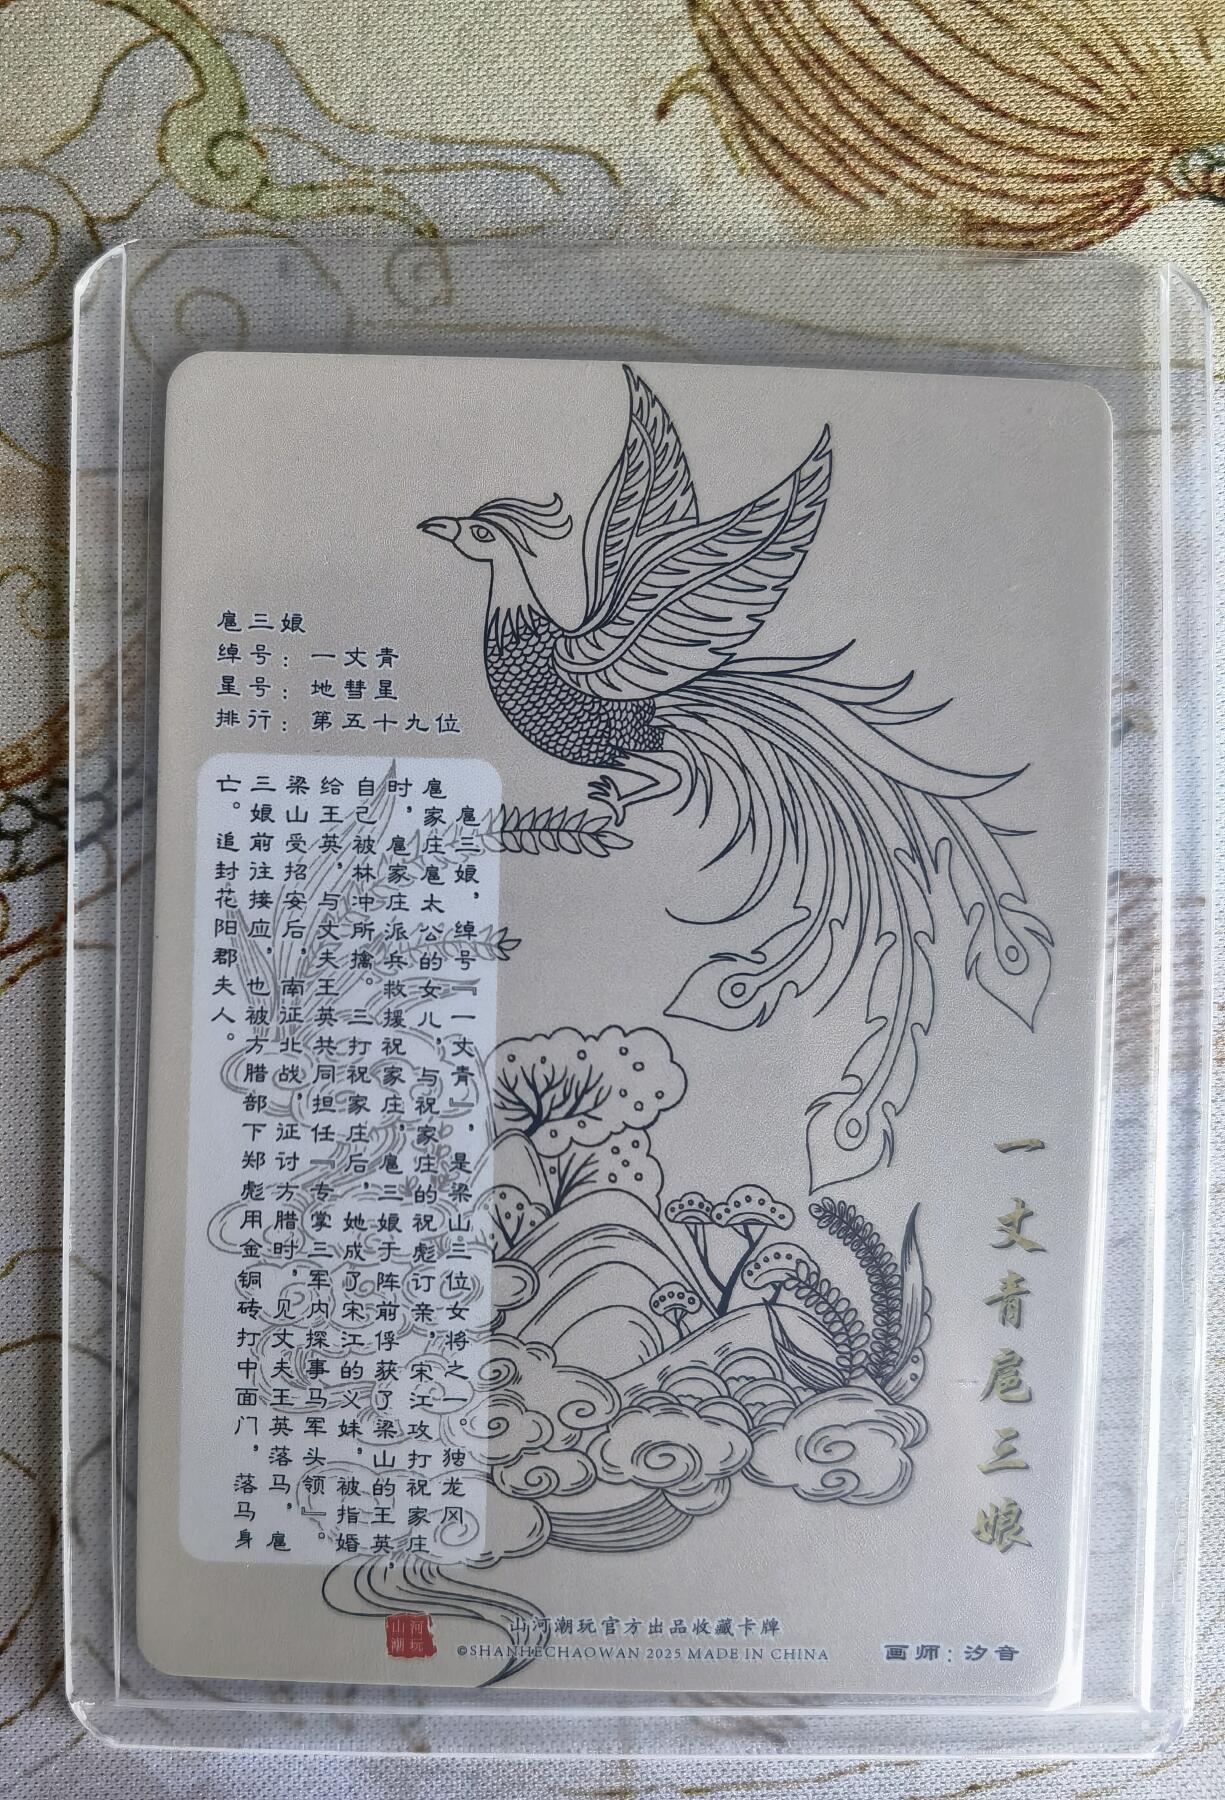 扈三娘
绰号：一丈青
星号：地彗星
排行：第五十九位
扈三娘，绰号『一丈青』，是梁山三位女将之一。独龙风
扈家庄扈太公的女儿，与祝家庄的祝彪订亲，宋江攻打祝家庄
时，扈家庄派兵救援祝家庄，扈三娘于阵前俘获了梁山的王英，
自己被林冲所擒。三打祝家庄后，她成了宋江的义妹，被指婚
给王英，与丈夫王英共同担任『专掌三军内探事马军头领』。
梁山受招安后，南征北战，征讨方腊时，见丈夫王英落马，扈
三娘前往接应，也被方腊部下郑彪用金铜砖打中面门，落马身
亡。追封花阳郡夫人。
一丈青扈三娘
山河潮玩
山河潮玩官方出品收藏卡牌
©SHANHECHAOWAN 2025 MADE IN CHINA
画师：汐音